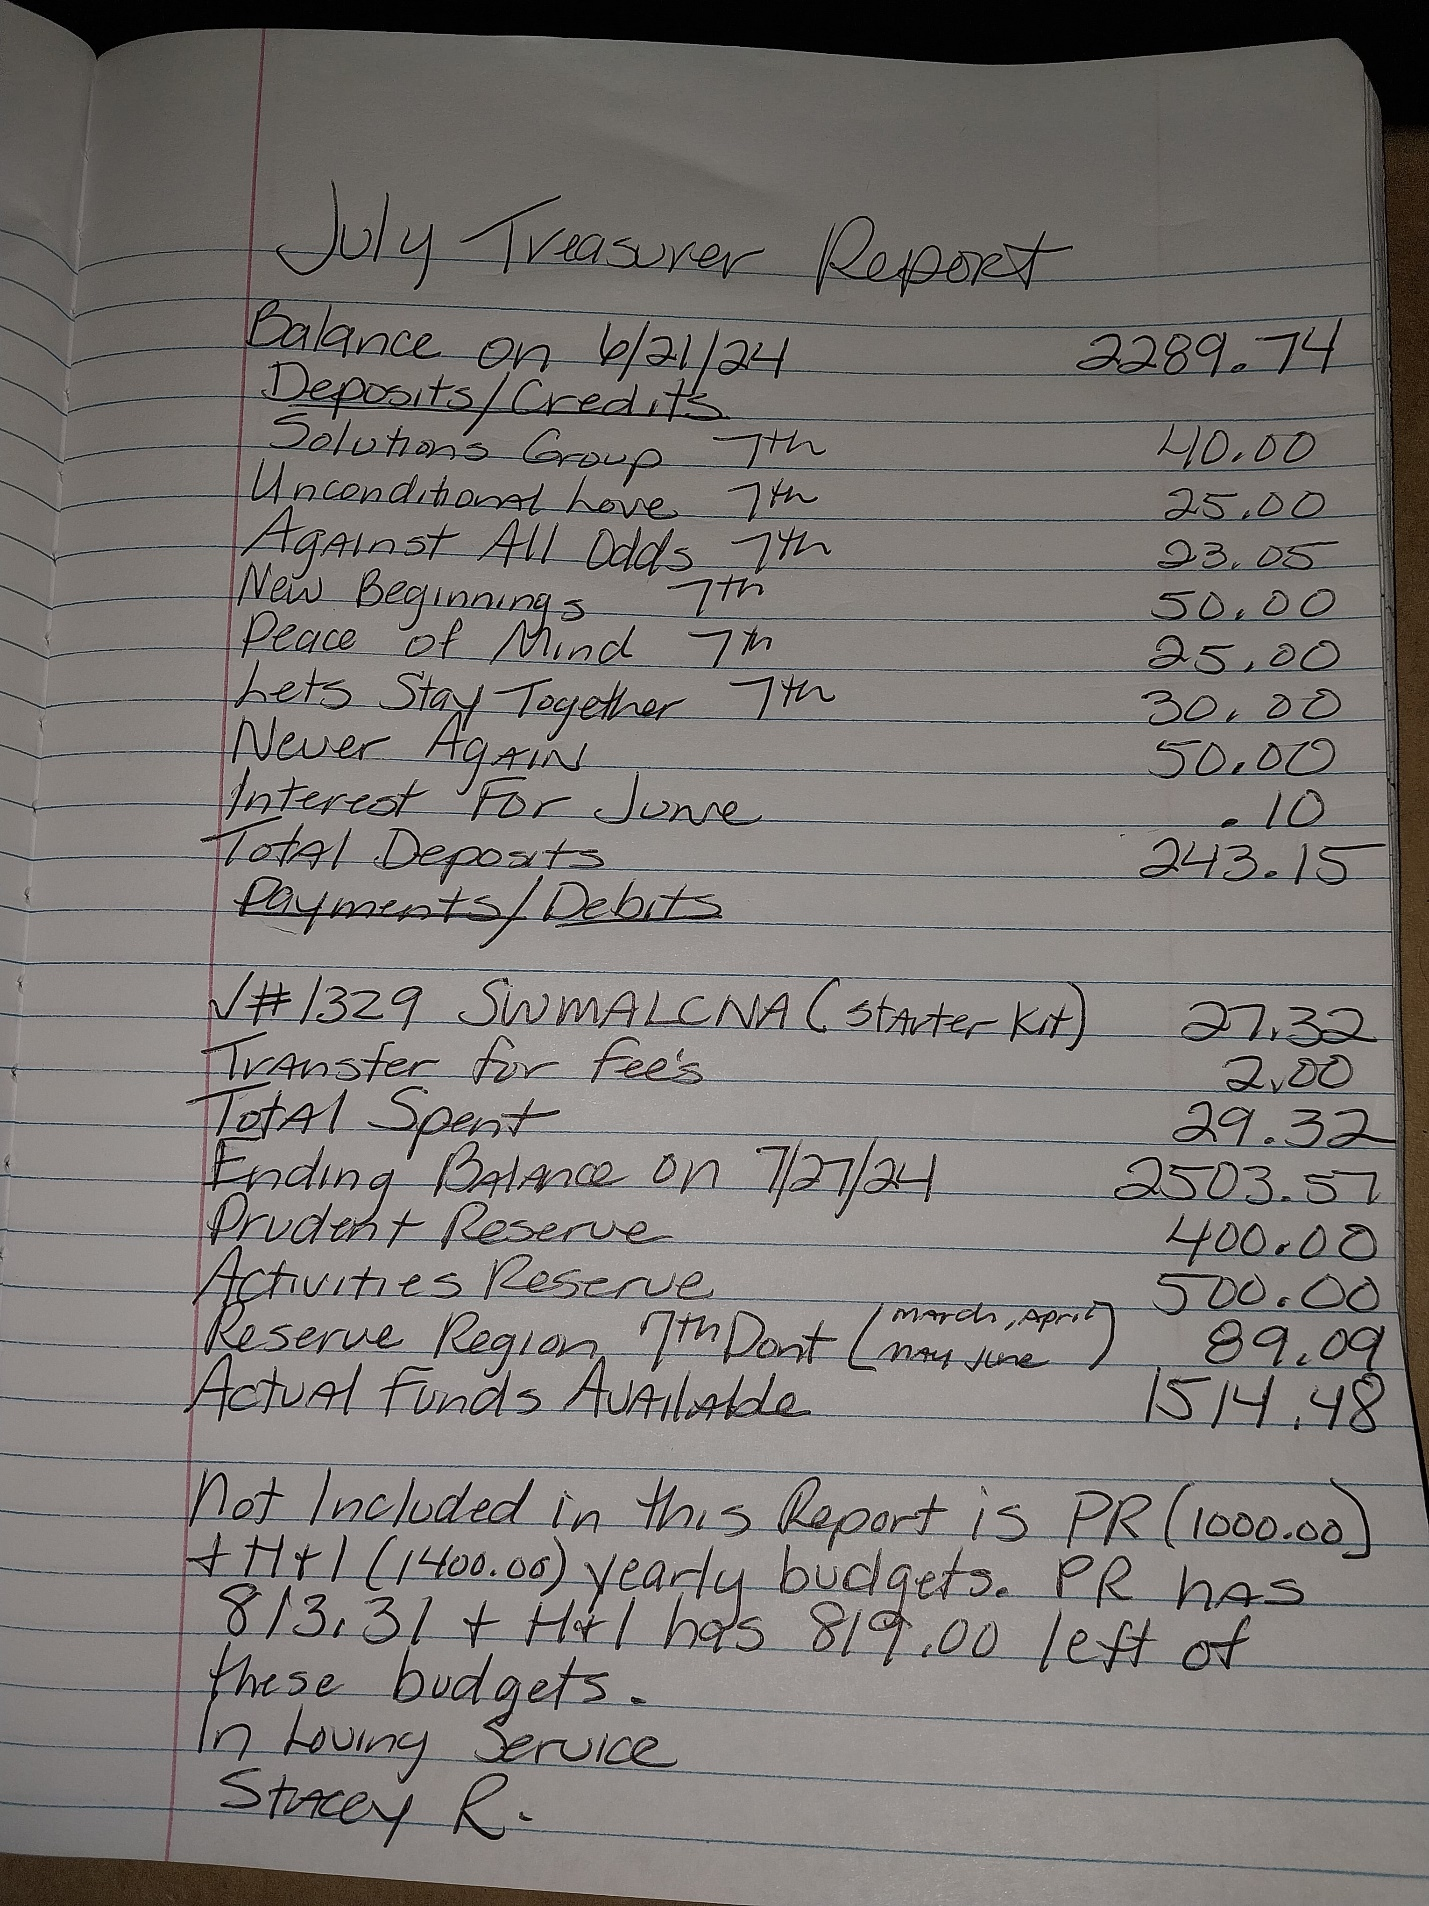 July Treasurer Report
Balance on 6/21/24 2289.74
Deposits/Credits
Solutions Group 7th 40.00
Unconditional Love 7th 25.00
Against All Odds 7th 23.05
New Beginnings 7th 50.00
Peace of Mind 7th 25.00
Lets Stay Together 7th 30.00
Never Again 50.00
Interest For June .10
Total Deposits 243.15
Payments/Debits
√#1329 SWMALCNA (Starter Kit) 27.32
Transfer for fee's 2.00
Total Spent 29.32
Ending Balance on 7/27/24 2503.57
Prudent Reserve 400.00
Activities Reserve 500.00
Reserve Region 7th Dont (March, April May June) 89.09
Actual Funds Available 1514.48
Not Included in this Report is PR (1000.00)
+ H+I (1400.00) yearly budgets. PR has
813.31 + H+I has 819.00 left of
these budgets.
In Loving Service
Stacey R.